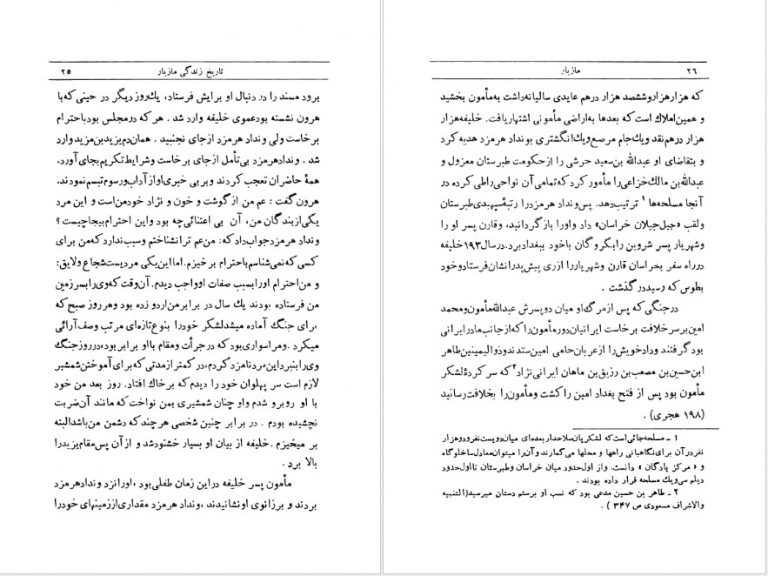 تاریخ زندگی مازیار ۲۵
برود مسند را در دنبال او برایش فرستاد، یك‌روز دیگر در حینی كه با
هرون نشسته بود عموی خلیفه وارد شد. هر كه در مجلس بود باحترام
برخاست ولی ونداد هرمزد ازجای نجنبید. همان‌دم یزید بن مزید وارد
شد. ونداد هرمزد بی‌تأمل از جای برخاست وشرایط تكریم بجای آورد.
همهٔ حاضران تعجب كردند و بر بی خبری او از آداب ورسوم تبسم نمودند.
هرون گفت: عم من از گوشت و خون و نژاد خود من است و این مرد
یكی از بندگان من، آن بی اعتنائی چه بود واین احترام بیجا چیست؟
ونداد هرمزد جواب داد كه: من عم ترا نشناختم وسبب ندارد كه من برای
كسی كه نمی‌شناسم باحترام برخیزم. اما این یكی مردیست شجاع ولایق:
و من احترام او را بسبب صفات او واجب دیدم. آن وقت كه وی را بسرزمین
من فرستاده بودند یك سال در برابر من اردو زده بود و هر روز صبح كه
برای جنگ آماده میشد لشكر خود را بنوع تازه‌ای مرتب وصف آرائی
میكرد. ومراسواری بود كه در جرأت ومقام با او برابر بود، در روز جنگ
وی را بنبرد این مرد نامزد كردم، در كمتر از مدتی كه برای آموختن شمشیر
لازم است سر پهلوان خود را دیدم كه بر خاك افتاد. روز بعد من خود
با او روبرو شدم واو چنان شمشیری بمن نواخت كه مانند آن ضربت
نچشیده بودم. در برابر چنین شخصی هر چند كه دشمن من باشد البته
بر میخیزم. خلیفه از بیان او بسیار خشنود شد و از آن پس مقام یزید را
بالا برد.
مأمون پسر خلیفه در این زمان طفلی بود، او را نزد ونداد هرمزد
بردند و بر زانوی او نشانیدند، ونداد هرمزد مقداری از زمینهای خود را
۲۶ مازیار
كه هزار هزار وششصد هزار درهم عایدی سالیانه داشت به مأمون بخشید
و همین املاك است كه بعدها به اراضی مأمونی اشتهار یافت. خلیفه هزار
هزار درهم نقد ویك جام مرصع ویك انگشتری بونداد هرمزد هدیه كرد
و بتقاضای او عبدالله بن سعید حرشی را از حكومت طبرستان معزول و
عبدالله بن مالك خزاعی را مأمور كرد كه تمامی آن نواحی را طی كرده در
آنجا مسلحه‌ها ۱ ترتیب دهد. پس ونداد هرمزد را رتبهٔ سپهبدی طبرستان
ولقب «جیل جیلان خراسان» داد واورا باز گردانید، وقارن پسر او را
وشهریار پسر شروین را بگروگان باخود ببغداد برد. در سال ۱۹۳ خلیفه
در راه سفر بخراسان قارن وشهریار را از ری پیش پدرانشان فرستاد و خود
بطوس كه رسید در گذشت.
در جنگی كه پس از مرگ او میان دو پسرش عبدالله مأمون ومحمد
امین بر سر خلافت برخاست ایرانیان دور مأمون را كه از جانب مادر ایرانی
بود گرفتند وداد خویش را از عربان حامی امین ستدند وذوالیمینین طاهر
ابن حسین بن مصعب بن رزیق بن ماهان ایرانی نژاد ۲ كه سر كردهٔ لشكر
مأمون بود پس از فتح بغداد امین را كشت و مأمون را بخلافت رسانید
(۱۹۸ هجری).
۱ – مسلحه جائی است كه لشكریان سلاحدار بعده‌ای میان دویست نفر و دو هزار
نفر در آن برای نگاهبانی راهها و محلها می‌گمارند و آن را میتوان معادل ساخلوگاه
و « مركز پادگان » دانست. و از اول حدود میان خراسان وطبرستان تا اول حدود
دیلم سی ویك مسلحه قرار داده بودند.
۲ – طاهر بن حسین مدعی بود كه نسب او برستم دستان میرسید (التنبیه
والاشراف مسعودی ص ۳۴۷).